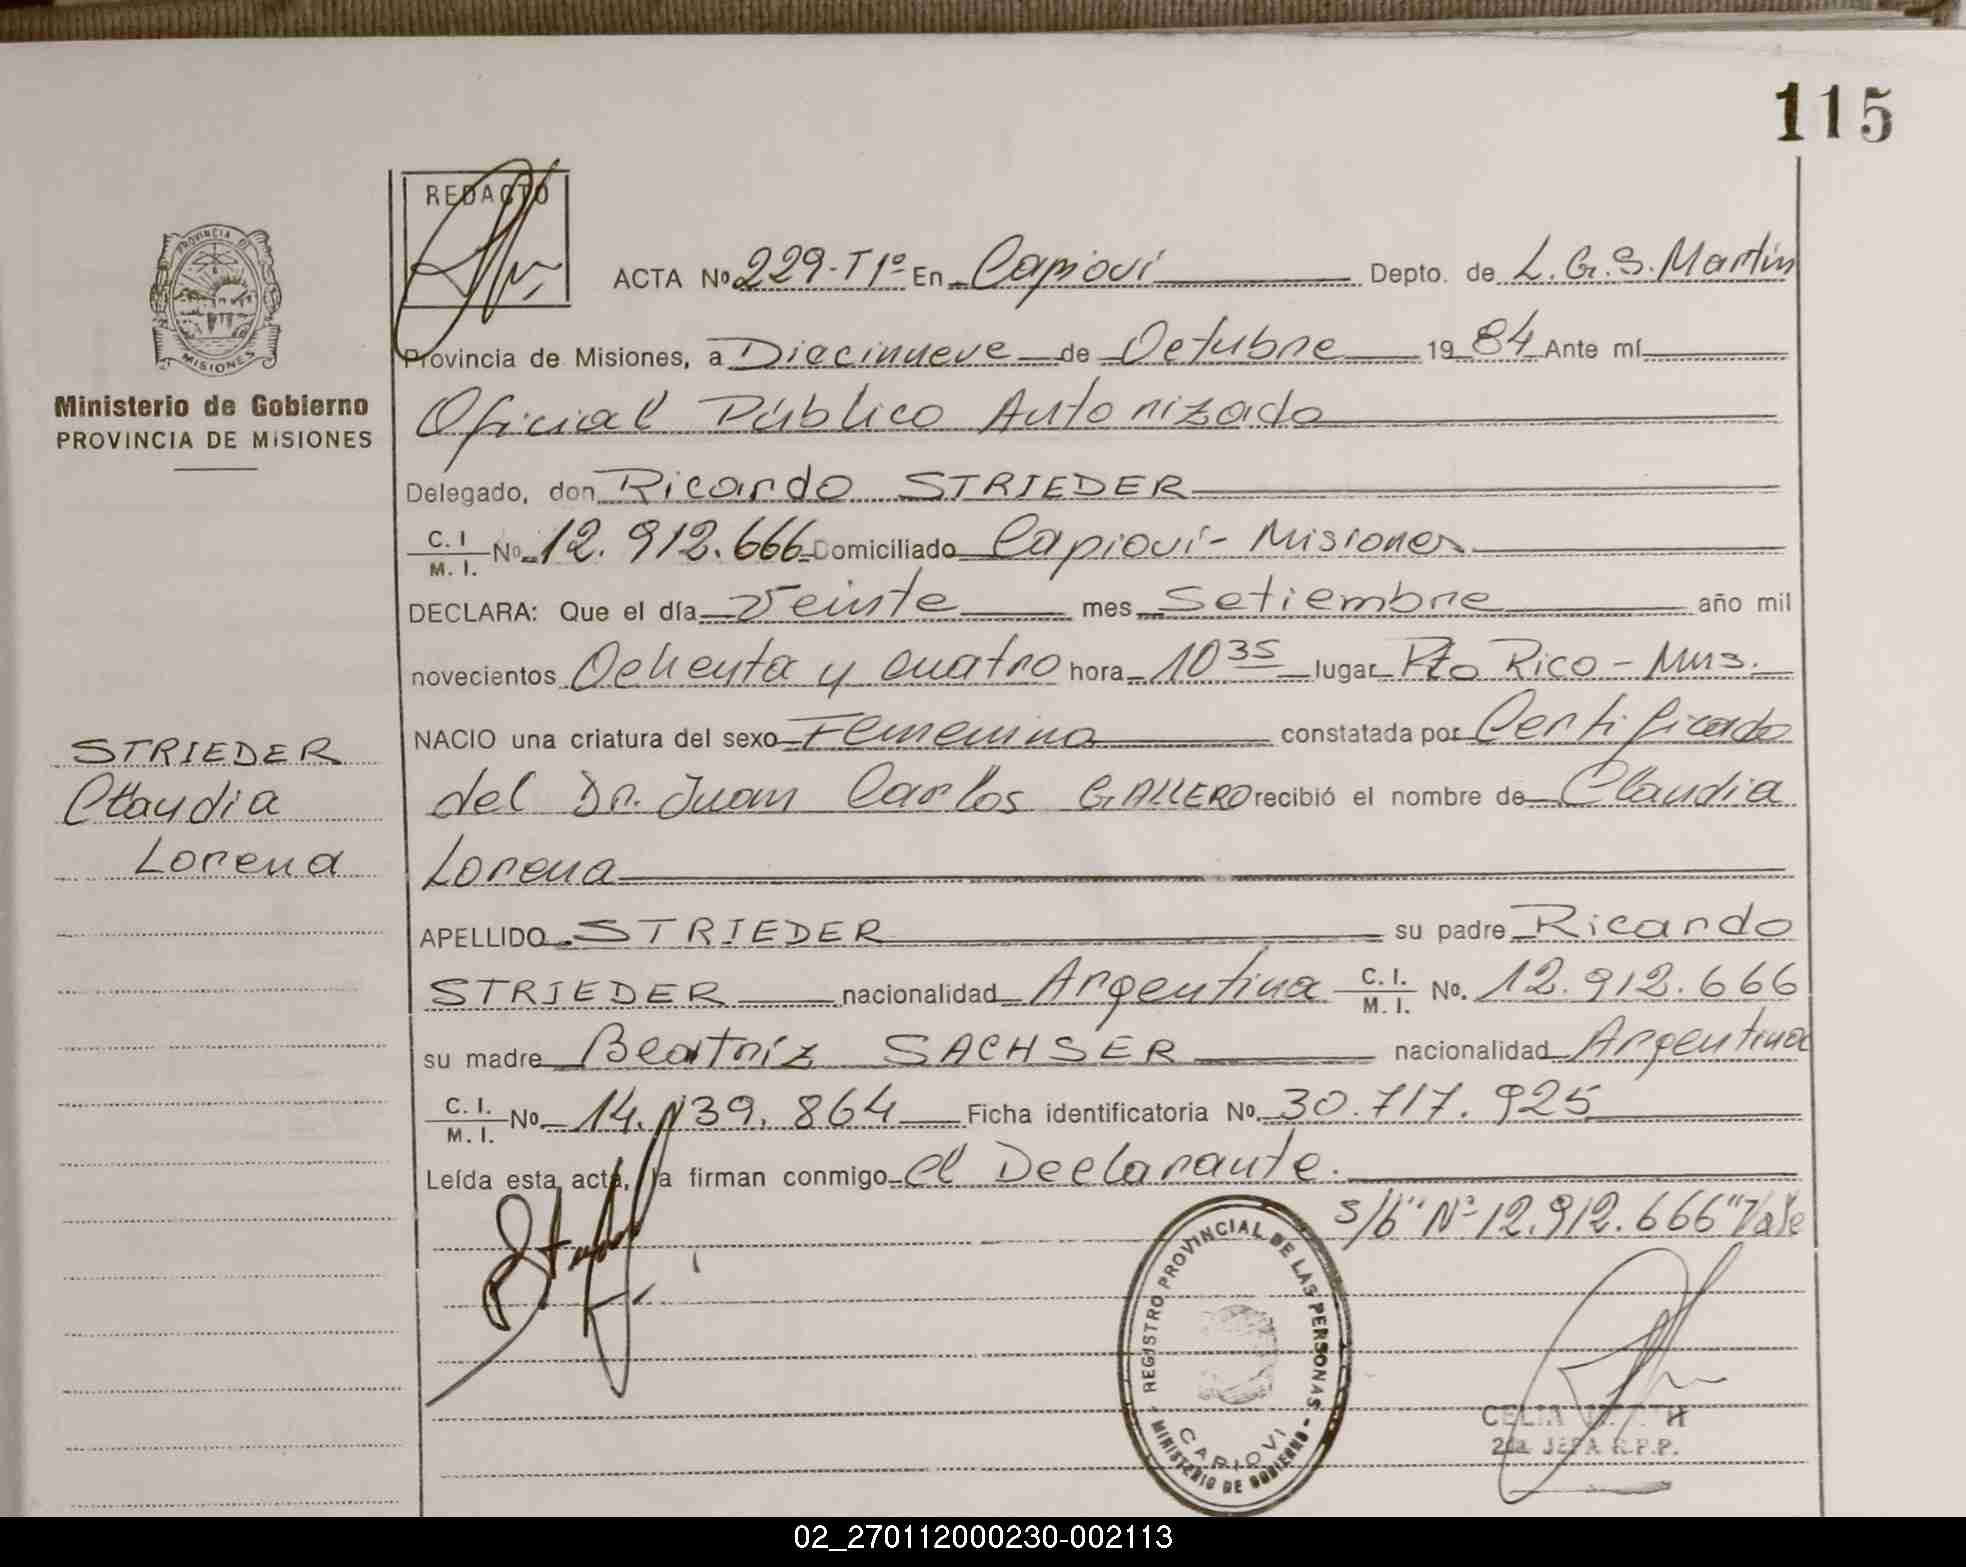 115
REDACTO
PROVINCIA DE
MISIONES
Ministerio de Gobierno
PROVINCIA DE MISIONES
ACTA No 229-T1º En Capioví Depto. de L.G.S. Martín
Provincia de Misiones, a Diecinueve de Octubre 1984 Ante mí
Oficial Público Autorizado
Delegado, don Ricardo STRIEDER
C. I / M. I. No 12.912.666 Domiciliado Capioví - Misiones
DECLARA: Que el día Veinte mes Setiembre año mil
novecientos Ochenta y cuatro hora 10 35 lugar Pto Rico - Mns.
NACIO una criatura del sexo Femenino constatada por Certificado
del Dr. Juan Carlos GALLERO recibió el nombre de Claudia
Lorena
APELLIDO STRIEDER su padre Ricardo
STRIEDER nacionalidad Argentina C. I. / M. I. No. 12.912.666
su madre Beatriz SACHSER nacionalidad Argentina
C. I. / M. I. No. 14.139.864 Ficha identificatoria No. 30.717.925
Leída esta acta, la firman conmigo el Declarante.
s/b "Nº 12.912.666" Vale
STRIEDER
Claudia
Lorena
REGISTRO PROVINCIAL DE LAS PERSONAS
MINISTERIO DE GOBIERNO
CAPIOVI
CELIA
2da. JEFA R.P.P.
02_270112000230-002113